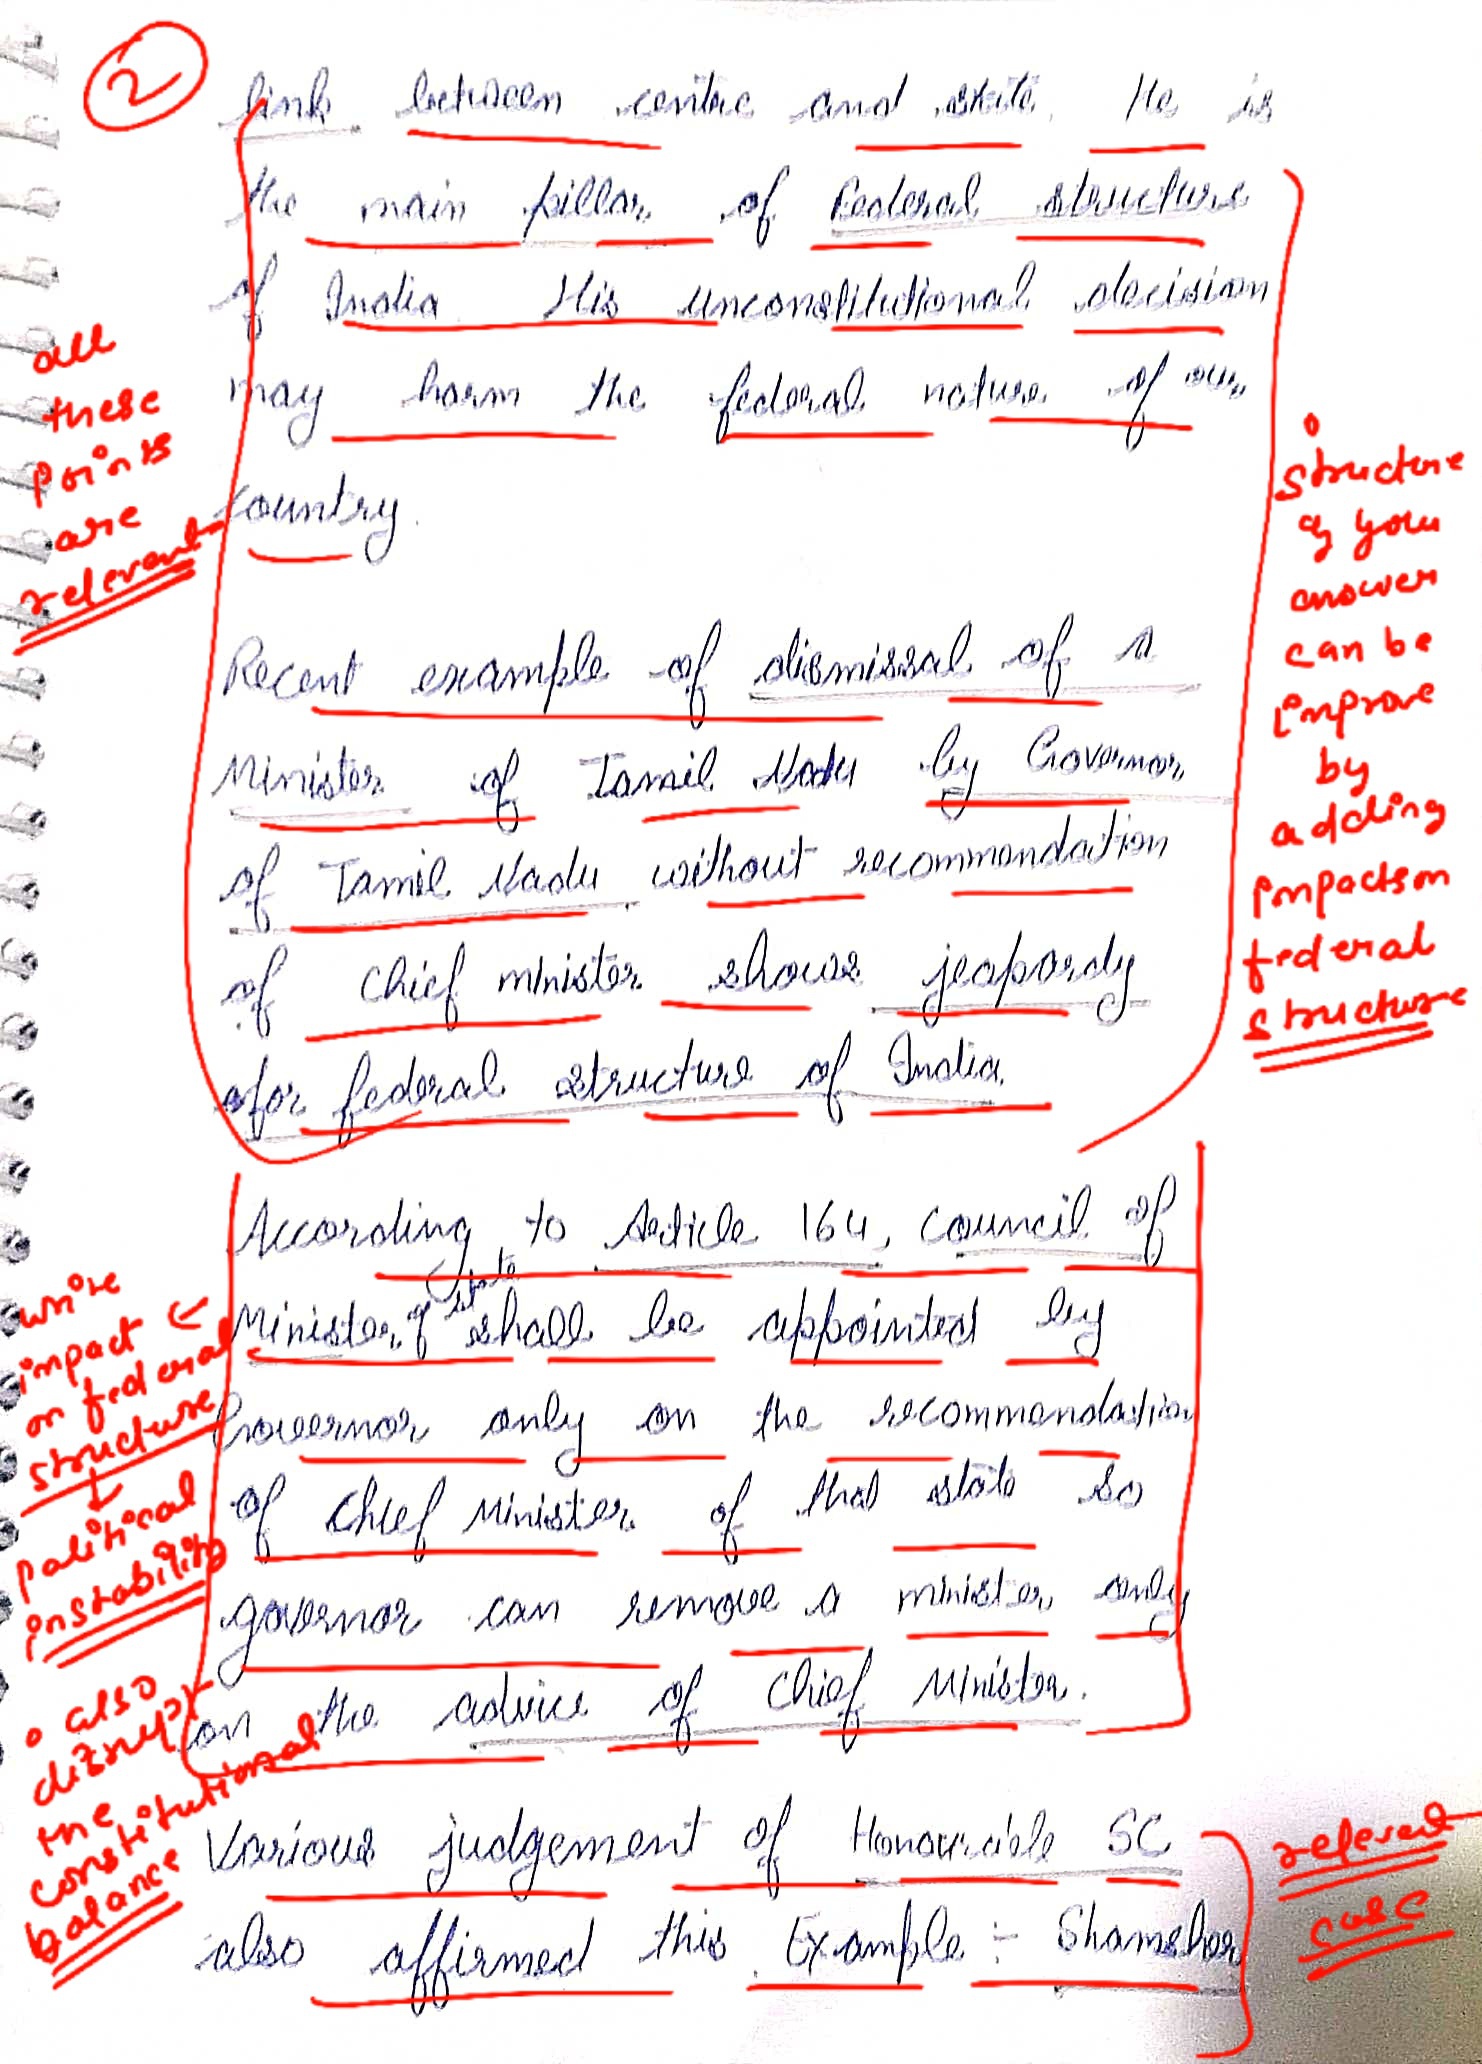 2
link between centre and state. He is
the main pillar of Federal structure
of India. His unconstitutional decision
may harm the federal nature of our
country.
Recent example of dismissal of a
Minister of Tamil Nadu by Governor
of Tamil Nadu without recommendation
of Chief minister shows jeopardy
for federal structure of India.
According to Article 164, Council of
Minister of state shall be appointed by
Governor only on the recommendation
of Chief Minister of that state so
governor can remove a minister only
on the advice of Chief Minister.
Various judgement of Honourable SC
also affirmed this. Example :- Shamsher
all
these
points
are
relevant
structure
of your
answer
can be
improve
by
adding
impacts on
federal
structure
write
impact
on federal
structure
political
instability
also
disrupt
the
constitutional
balance
relevant
case